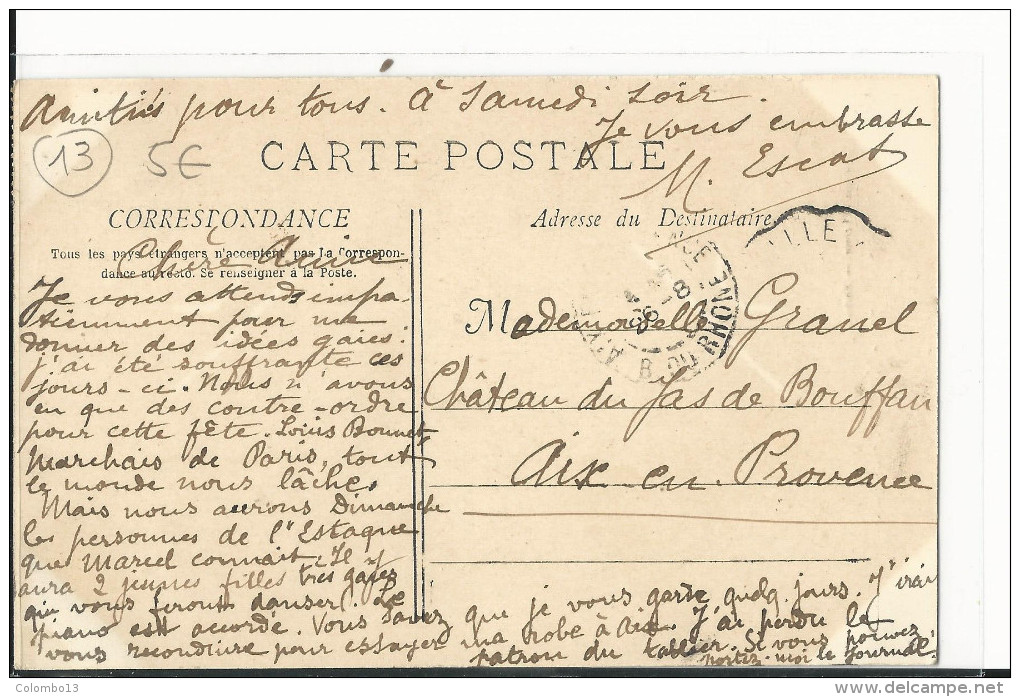 Amitiés pour tous. à Samedi soir.
Je vous embrasse
M. Escat
13
5€
CARTE POSTALE
CORRESPONDANCE
Tous les pays étrangers n'acceptent pas La Correspon-
dance au recto. Se renseigner à la Poste.
Adresse du Destinataire
VILLE
RHONE
B. DU
Chère Amie
Je vous attends impa-
tiemment pour me
donner des idées gaies.
j'ai été souffrante ces
jours-ci. Nous n'avons
eu que des contre-ordre
pour cette fête. Louis Bonnet,
Marchais de Paris, tout
le monde nous lâche,
Mais nous aurons Dimanche
les personnes de l'Estaque
que Marcel connait. Il y
aura 2 jeunes filles très gaies
qui vous feront danser. Le
piano est accordé. Vous savez
vous reconduire pour essayer
Mademoiselle Granel
Château du Jas de Bouffan
Aix en Provence
que je vous garde quelq. jours. J'irai
ma robe à Aix. J'ai perdu le
patron du tablier. Si vous pouvez
portez-moi le journal.
Colombo13
delcampe.net